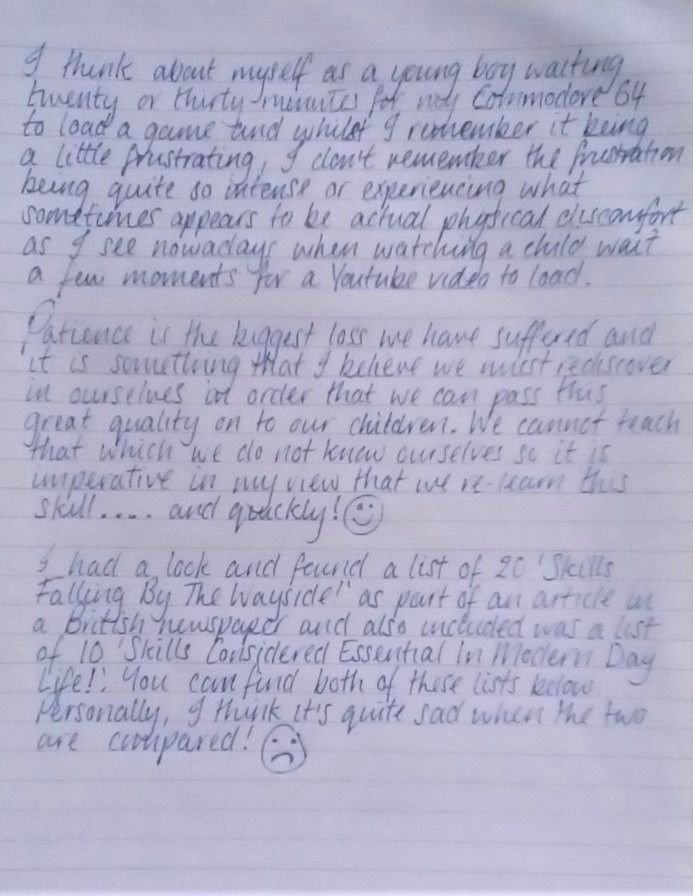 I think about myself as a young boy waiting
twenty or thirty minutes for my Commodore 64
to load a game and whilst I remember it being
a little frustrating, I don't remember the frustration
being quite so intense or experiencing what
sometimes appears to be actual physical discomfort
as I see nowadays when watching a child wait
a few moments for a Youtube video to load.
Patience is the biggest loss we have suffered and
it is something that I believe we must rediscover
in ourselves in order that we can pass this
great quality on to our children. We cannot teach
that which we do not know ourselves so it is
imperative in my view that we re-learn this
skill.... and quickly! ☺
I had a look and found a list of 20 'Skills
Falling By The Wayside!' as part of an article in
a British newspaper and also included was a list
of 10 'Skills Considered Essential In Modern Day
Life!'. You can find both of these lists below.
Personally, I think it's quite sad when the two
are compared! ☹